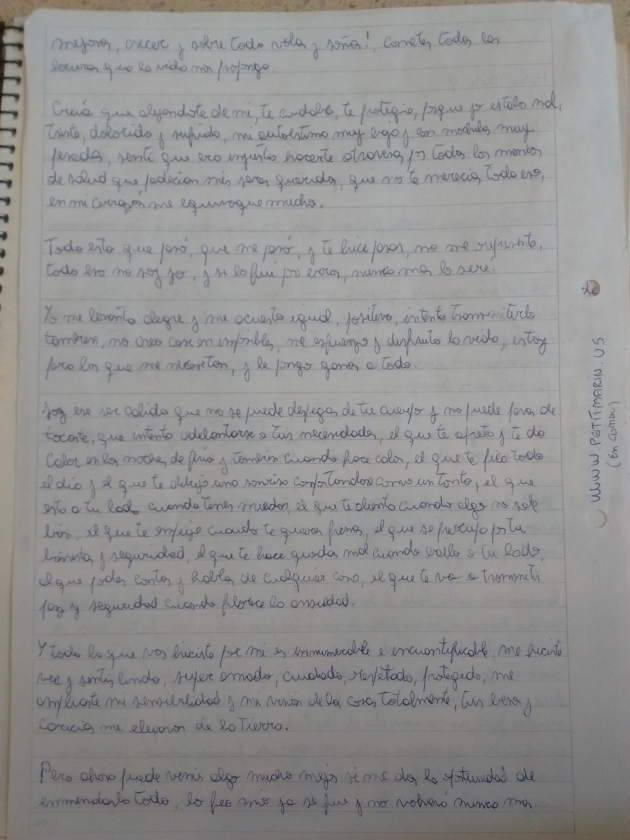 mejorar, crecer y sobre todo volar y soñar! Cometer todas las
locuras que la vida nos proponga.
Creía que alejandote de mi, te cuidaba, te protegia, porque yo estaba mal,
triste, dolorido y sufrido, mi autoestima muy baja y con mochilas muy
pesadas, sentí que era injusto hacerte atravesar por todos los mambos
de salud que padecian mis seres queridos, que no te merecia todo eso,
en mi corazón me equivoque mucho.
Todo esto que pasó, que me pasó, y te hice pasar, no me representa,
todo eso no soy yo, y si lo fui por error, nunca mas lo sere.
Yo me levanto alegre y me acuesto igual, positivo, intento transmitirlo
tambien, no creo casi en imposibles, me esfuerzo y disfruto la vida, estoy
para los que me necesitan, y le pongo ganas a todo.
Soy ese ser calido que no se puede despegar de tu cuerpo y no puede parar de
tocarte, que intenta adelantarse a tus necesidades, el que te apreta y te da
calor en las noches de frio y tambien cuando hace calor, el que te pico todo
el dia y el que te dibujo una sonrisa comportandose como un tonto, el que
esta a tu lado cuando tenes miedos, el que te alienta cuando algo no sale
bien, el que te empuja cuando te queres frenar, el que se preocupa por tu
bienestar y seguridad, el que te hace quedar mal cuando baila a tu lado,
el que podes contar y hablar de cualquier cosa, el que te va a transmitir
paz y seguridad cuando florece la ansiedad.
Y todo lo que vos hiciste por mi es innumerable e incuantificable, me hiciste
ver y sentir lindo, super amado, cuidado, respetado, protegido, me
ampliaste mi sensibilidad y mi vision de las cosas totalmente, tus besos y
caricias me elevaron de la tierra.
Pero ahora puede venir algo mucho mejor si me das la oportunidad de
enmendarlo todo, lo feo mio ya se fue y no volverá nunca mas
WWW.PETTIMARIN.US
(en común)